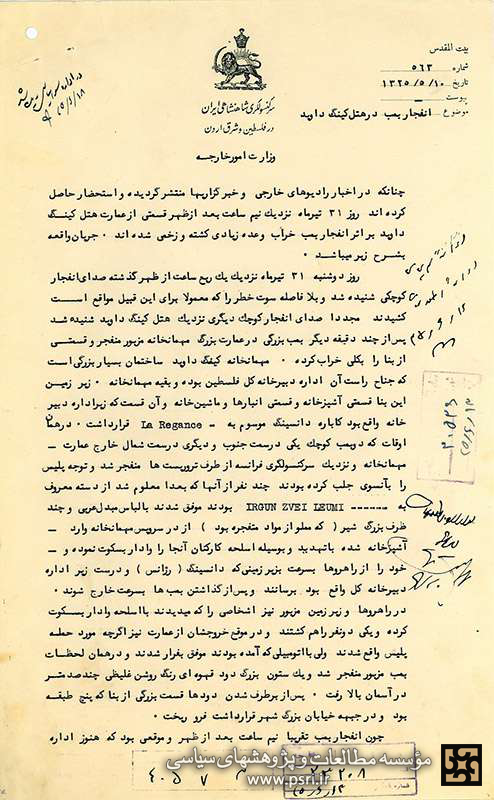 بیت المقدس
شماره ۵۶۳
تاریخ ۱۳۲۵/۵/۱۰
پیوست
موضوع انفجار بمب در هتل کینگ داوید
سرکنسولگری شاهنشاهی ایران
در فلسطین و شرق اردن
وزارت امور خارجه
چنانکه در اخبار رادیوهای خارجی و خبرگزاریها منتشر گردیده و استحضار حاصل
کرده اند روز ۳۱ تیرماه نزدیک نیم ساعت بعد از ظهر قسمتی از عمارت هتل کینگ
داوید بر اثر انفجار بمب خراب و عده زیادی کشته و زخمی شده اند ۰ جریان واقعه
بشرح زیر میباشد ۰
روز دوشنبه ۳۱ تیرماه نزدیک یک ربع ساعت از ظهر گذشته صدای انفجار
کوچکی شنیده شد و بلا فاصله سوت خطر را که معمولا برای این قبیل مواقع است
کشیدند مجددا صدای انفجار کوچک دیگری نزدیک هتل کینگ داوید شنیده شد
پس از چند دقیقه دیگر بمب بزرگی در عمارت بزرگ مهمانخانه مزبور منفجر و قسمتی
از بنا را بکلی خراب کرده ۰ مهمانخانه کینگ داوید ساختمان بسیار بزرگی است
که جناح راست آن اداره دبیرخانه کل فلسطین بوده و بقیه مهمانخانه ۰ زیر زمین
این بنا قسمتی آشپزخانه و قسمتی انبارها و ماشین خانه و آن قسمت که زیر اداره دبیر
خانه واقع بود کاباره دانسینگ موسوم به - La Regance قرار داشت ۰ در همان
اوقات که دو بمب کوچک یکی در سمت جنوب و دیگری در سمت شمال خارج عمارت -
مهمانخانه و نزدیک سرکنسولگری فرانسه از طرف تروریست ها منفجر شد و توجه پلیس
را بآنسوی جلب کرده بودند چند نفر از آنها که بعدا معلوم شد از دسته معروف
به ------ IRGUN ZVEI LEUMI بودند موفق شدند با لباس مبدل عربی و چند
ظرف بزرگ شیر ( که مملو از مواد منفجره بود ) از در سرویس مهمانخانه وارد -
آشپزخانه شده با تهدید و بوسیله اسلحه کارکنان آنجا را وادار بسکوت نموده و -
خود را از راهروها بسرعت بزیر زمینی که دانسینگ ( رژانس ) و درست زیر اداره
دبیرخانه کل واقع بود برسانند و پس از گذاشتن بمب ها بسرعت خارج شوند ۰
در راهروها و زیر زمین مزبور نیز اشخاصی را که میدیدند با اسلحه وادار بسکوت
کرده و یکی دو نفر را هم کشتند و در موقع خروجشان از عمارت نیز اگرچه مورد حمله
پلیس واقع شدند ولی با اتومبیلی که آمده بودند موفق بفرار شدند و در همان لحظات
بمب مزبور منفجر شد و یک ستون بزرگ دود قهوه ای رنگ روشن غلیظی چند صد متر
در آسمان بالا رفت ۰ پس از برطرف شدن دودها قسمت بزرگی از بنا که پنج طبقه
بود و در جبهه خیابان بزرگ شهر قرار داشت فرو ریخت ۰
چون انفجار بمب تقریبا نیم ساعت بعد از ظهر و موقعی بود که هنوز اداره
مؤسسه مطالعات و پژوهشهای سیاسی
www.psri.ir